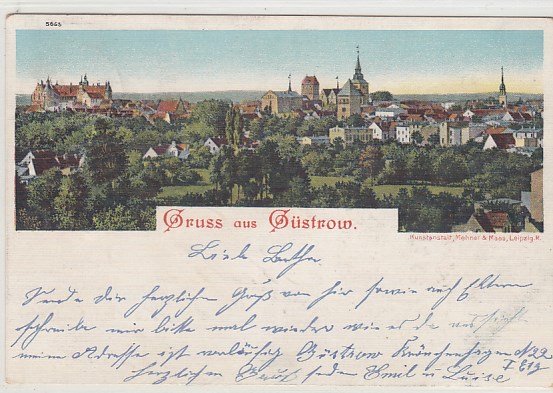 5665
Gruss aus Güstrow.
Kunstanstalt, Mehner & Maas, Leipzig R.
Liebe Bertha
Sende dir herzlichen Gruß von hir sowie auch Eltern
schreibe mir bitte mal wieder wie es da
meine Adresse ist vorläufig Güstrow No 22
herzlichen Gruß Emil u Luise